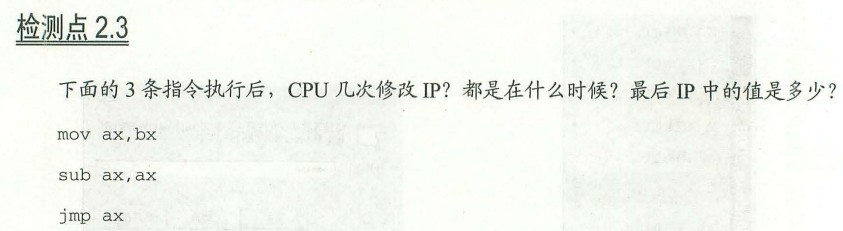 检测点 2.3
下面的 3 条指令执行后，CPU 几次修改 IP？都是在什么时候？最后 IP 中的值是多少？
mov ax,bx
sub ax,ax
jmp ax